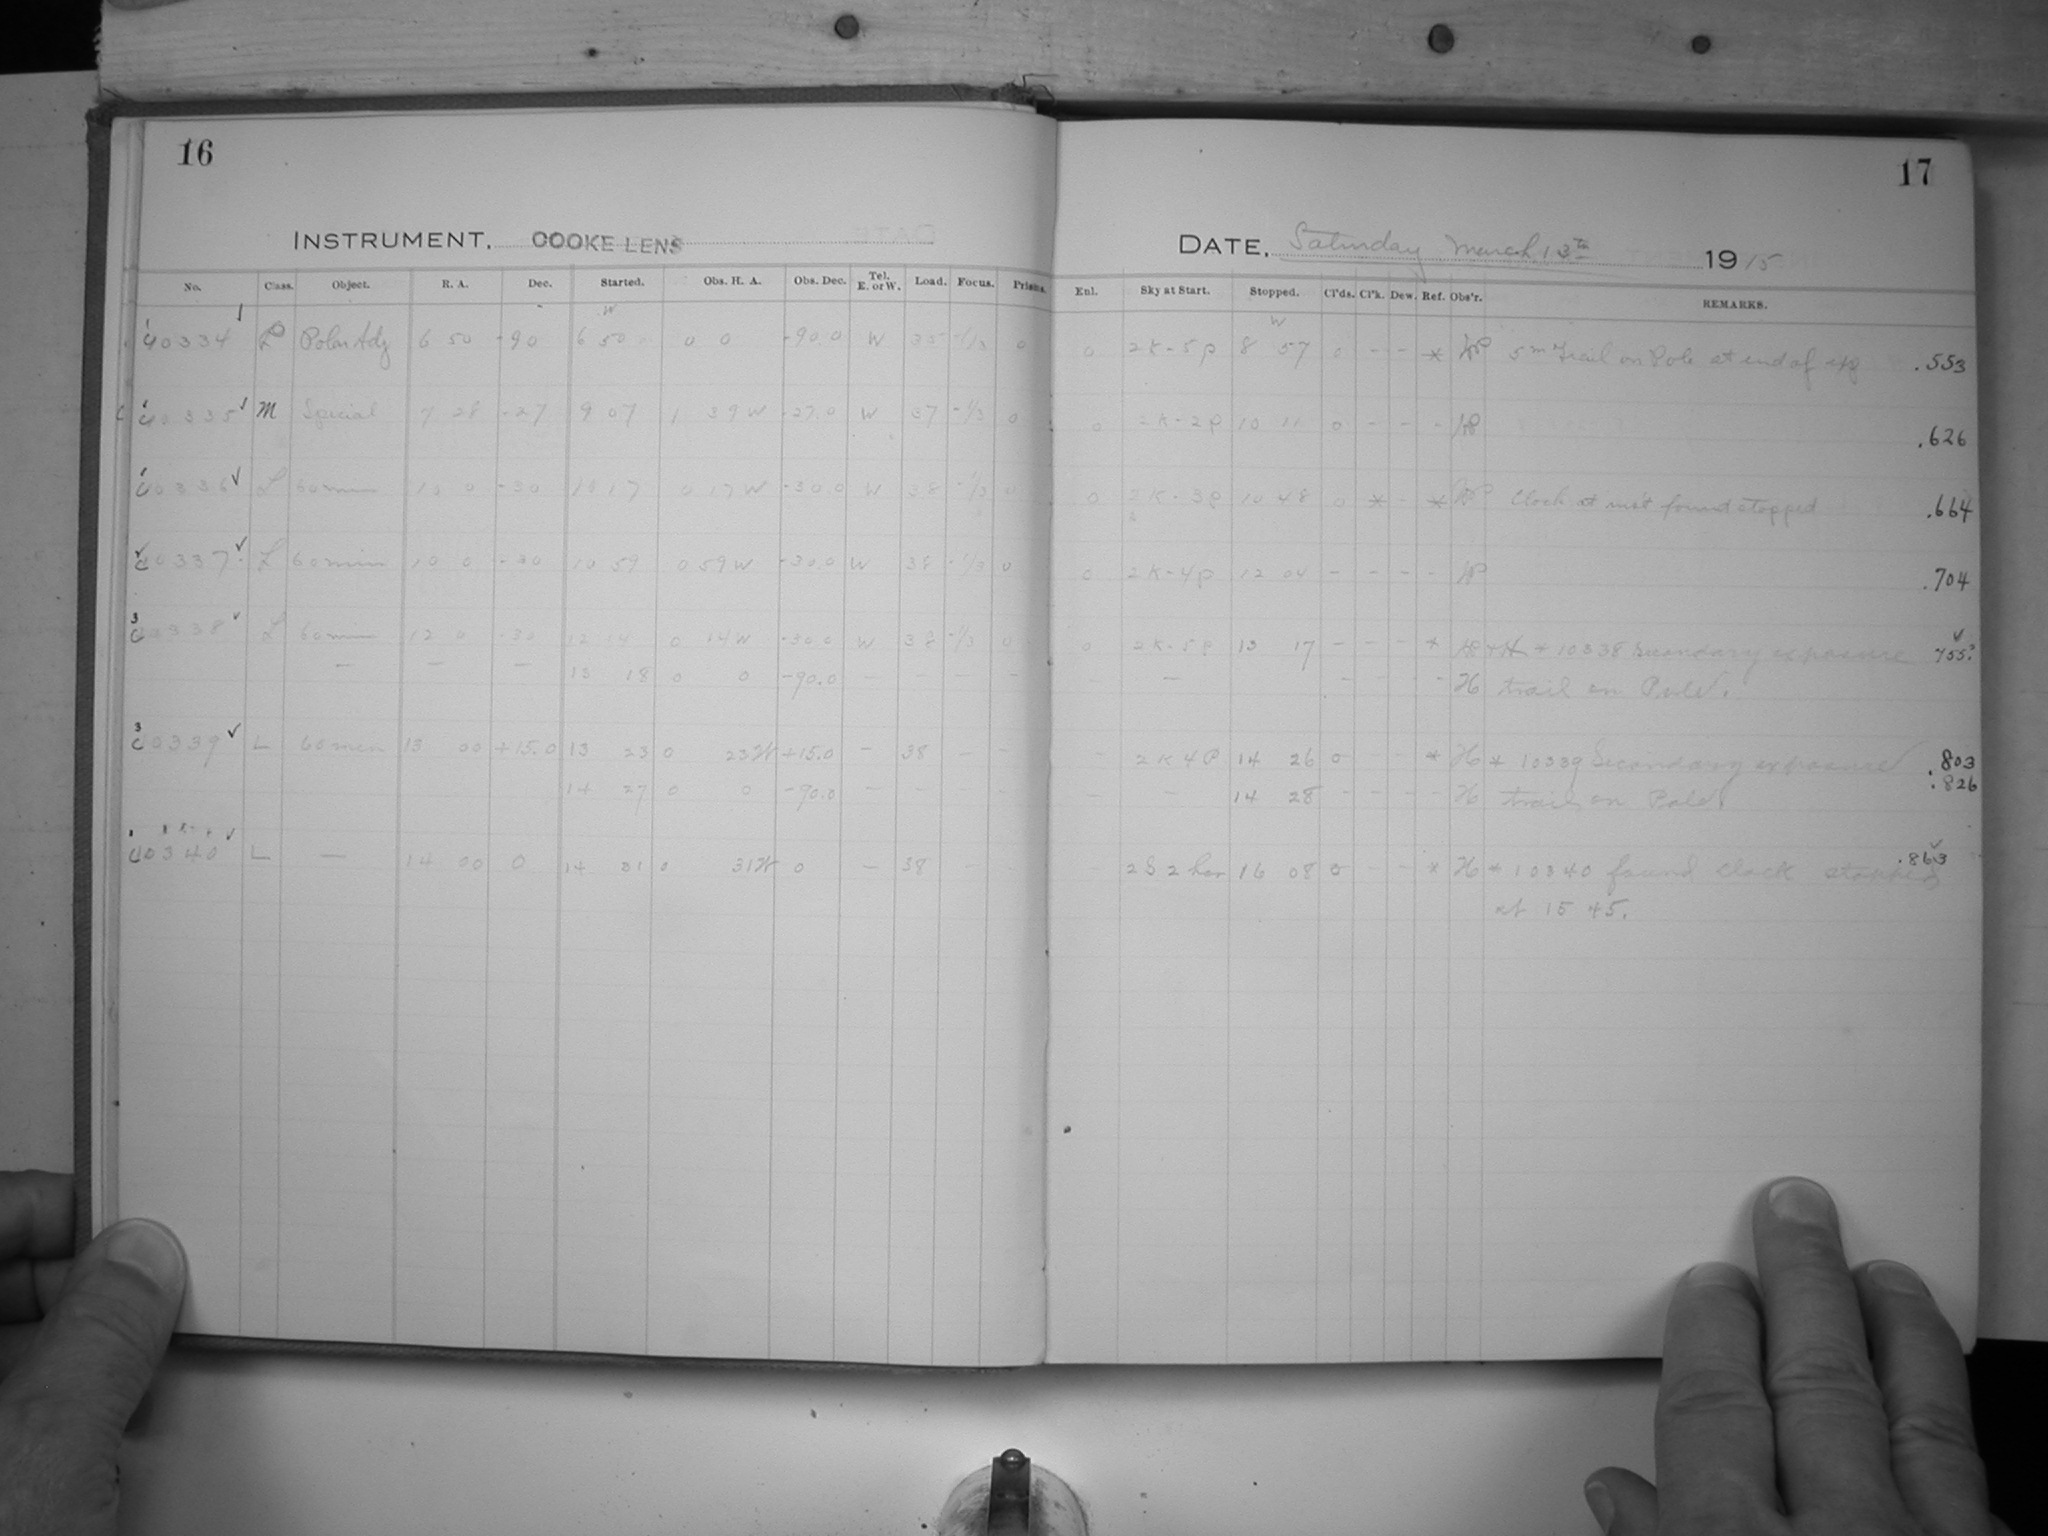 16
17
INSTRUMENT, COOKE LENS
DATE, Saturday March 13th 1915
No. Class. Object. R. A. Dec. Started. Obs. H. A. Obs. Dec. Tel. E. or W. Load. Focus. Prisms. Enl. Sky at Start. Stopped. Cl'ds. Cl'k. Dew. Ref. Obs'r. REMARKS.
10334 L Polar Adj 6 50 -90 6 50 0 0 -90.0 W 35 -1/3 0 0 2K-5P 8 57 0 - - * 5m Trail on Pole at end of exp .553
10335 M Special 7 28 -27 9 07 1 39W -27.0 W 37 -1/3 0 0 2K-2P 10 11 0 - - - .626
10336 L 60 min 10 0 -30 10 17 0 17W -30.0 W 38 -1/3 0 0 2K-3P 10 48 0 * - * Clock found stopped .664
10337 L 60 min 10 0 -30 10 59 0 59W -30.0 W 38 -1/3 0 0 2K-4P 12 04 - - - - .704
10338 L 60 min 12 0 -30 12 14 0 14W -30.0 W 38 -1/3 0 0 2K-5P 13 17 - - - * * 10338 Secondary exposure 755?
— — — 13 18 0 0 -90.0 — - - - - — - - - - H trail on Pole.
10339 L 60 min 13 00 +15.0 13 23 0 23W +15.0 — 38 - - - 2K4P 14 26 0 - - * H * 10339 Secondary exposure .803
14 27 0 0 -90.0 - - - - - - 14 28 - - - - H trail on Pole. .826
10340 L — 14 00 0 14 31 0 31W 0 — 38 - - 16 08 0 - - * H * 10340 found clock stopped .863
at 15 45.